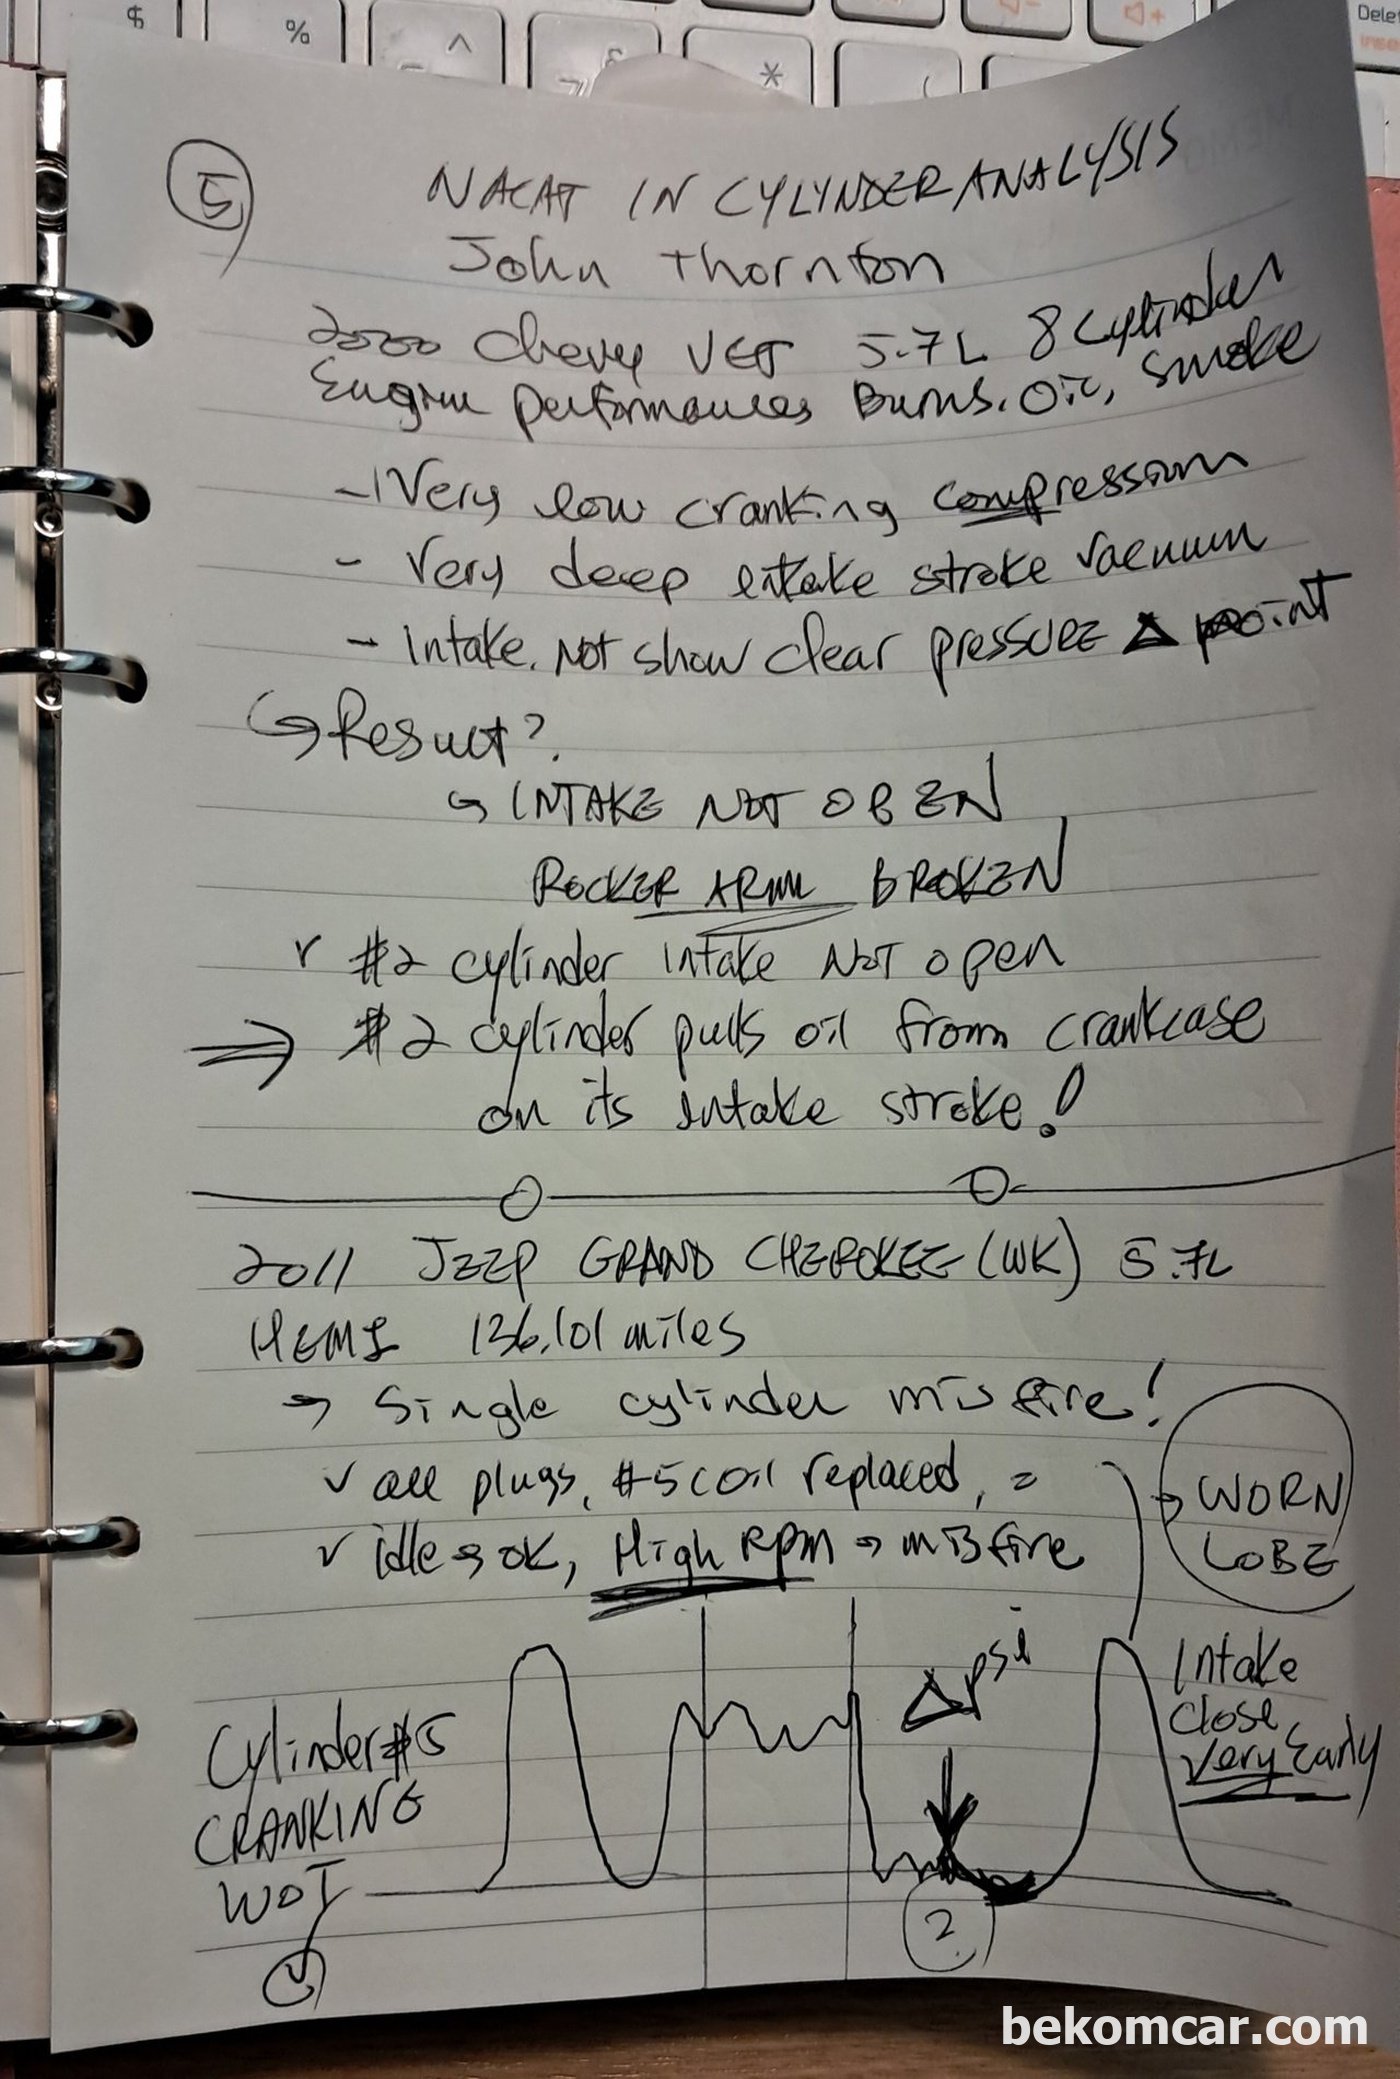 $ % ^ *
Dele
Inse
5
NACAT IN CYLYNDER ANALYSIS
John Thornton
2000 Chevy VET 5.7L 8 Cylinder
Engine performances Burns. Oil, Smoke
- Very low cranking compression
- Very deep intake stroke vacuum
- Intake. Not show clear pressure Δ point
↳ Result?
↳ INTAKE NOT OPEN
ROCKER ARM BROKEN
v #2 cylinder intake NOT open
⇒ #2 cylinder pulls oil from crankcase
on its intake stroke!
2011 JEEP GRAND CHEROKEE (WK) 5.7L
HEMI 136,101 miles
→ Single cylinder misfire!
v all plugs, #5 coil replaced, =
v idle → OK, High RPM → misfire
→ WORN
LOBE
Δpsi
Intake
close
very Early
Cylinder #5
CRANKING
WOT
2
bekomcar.com